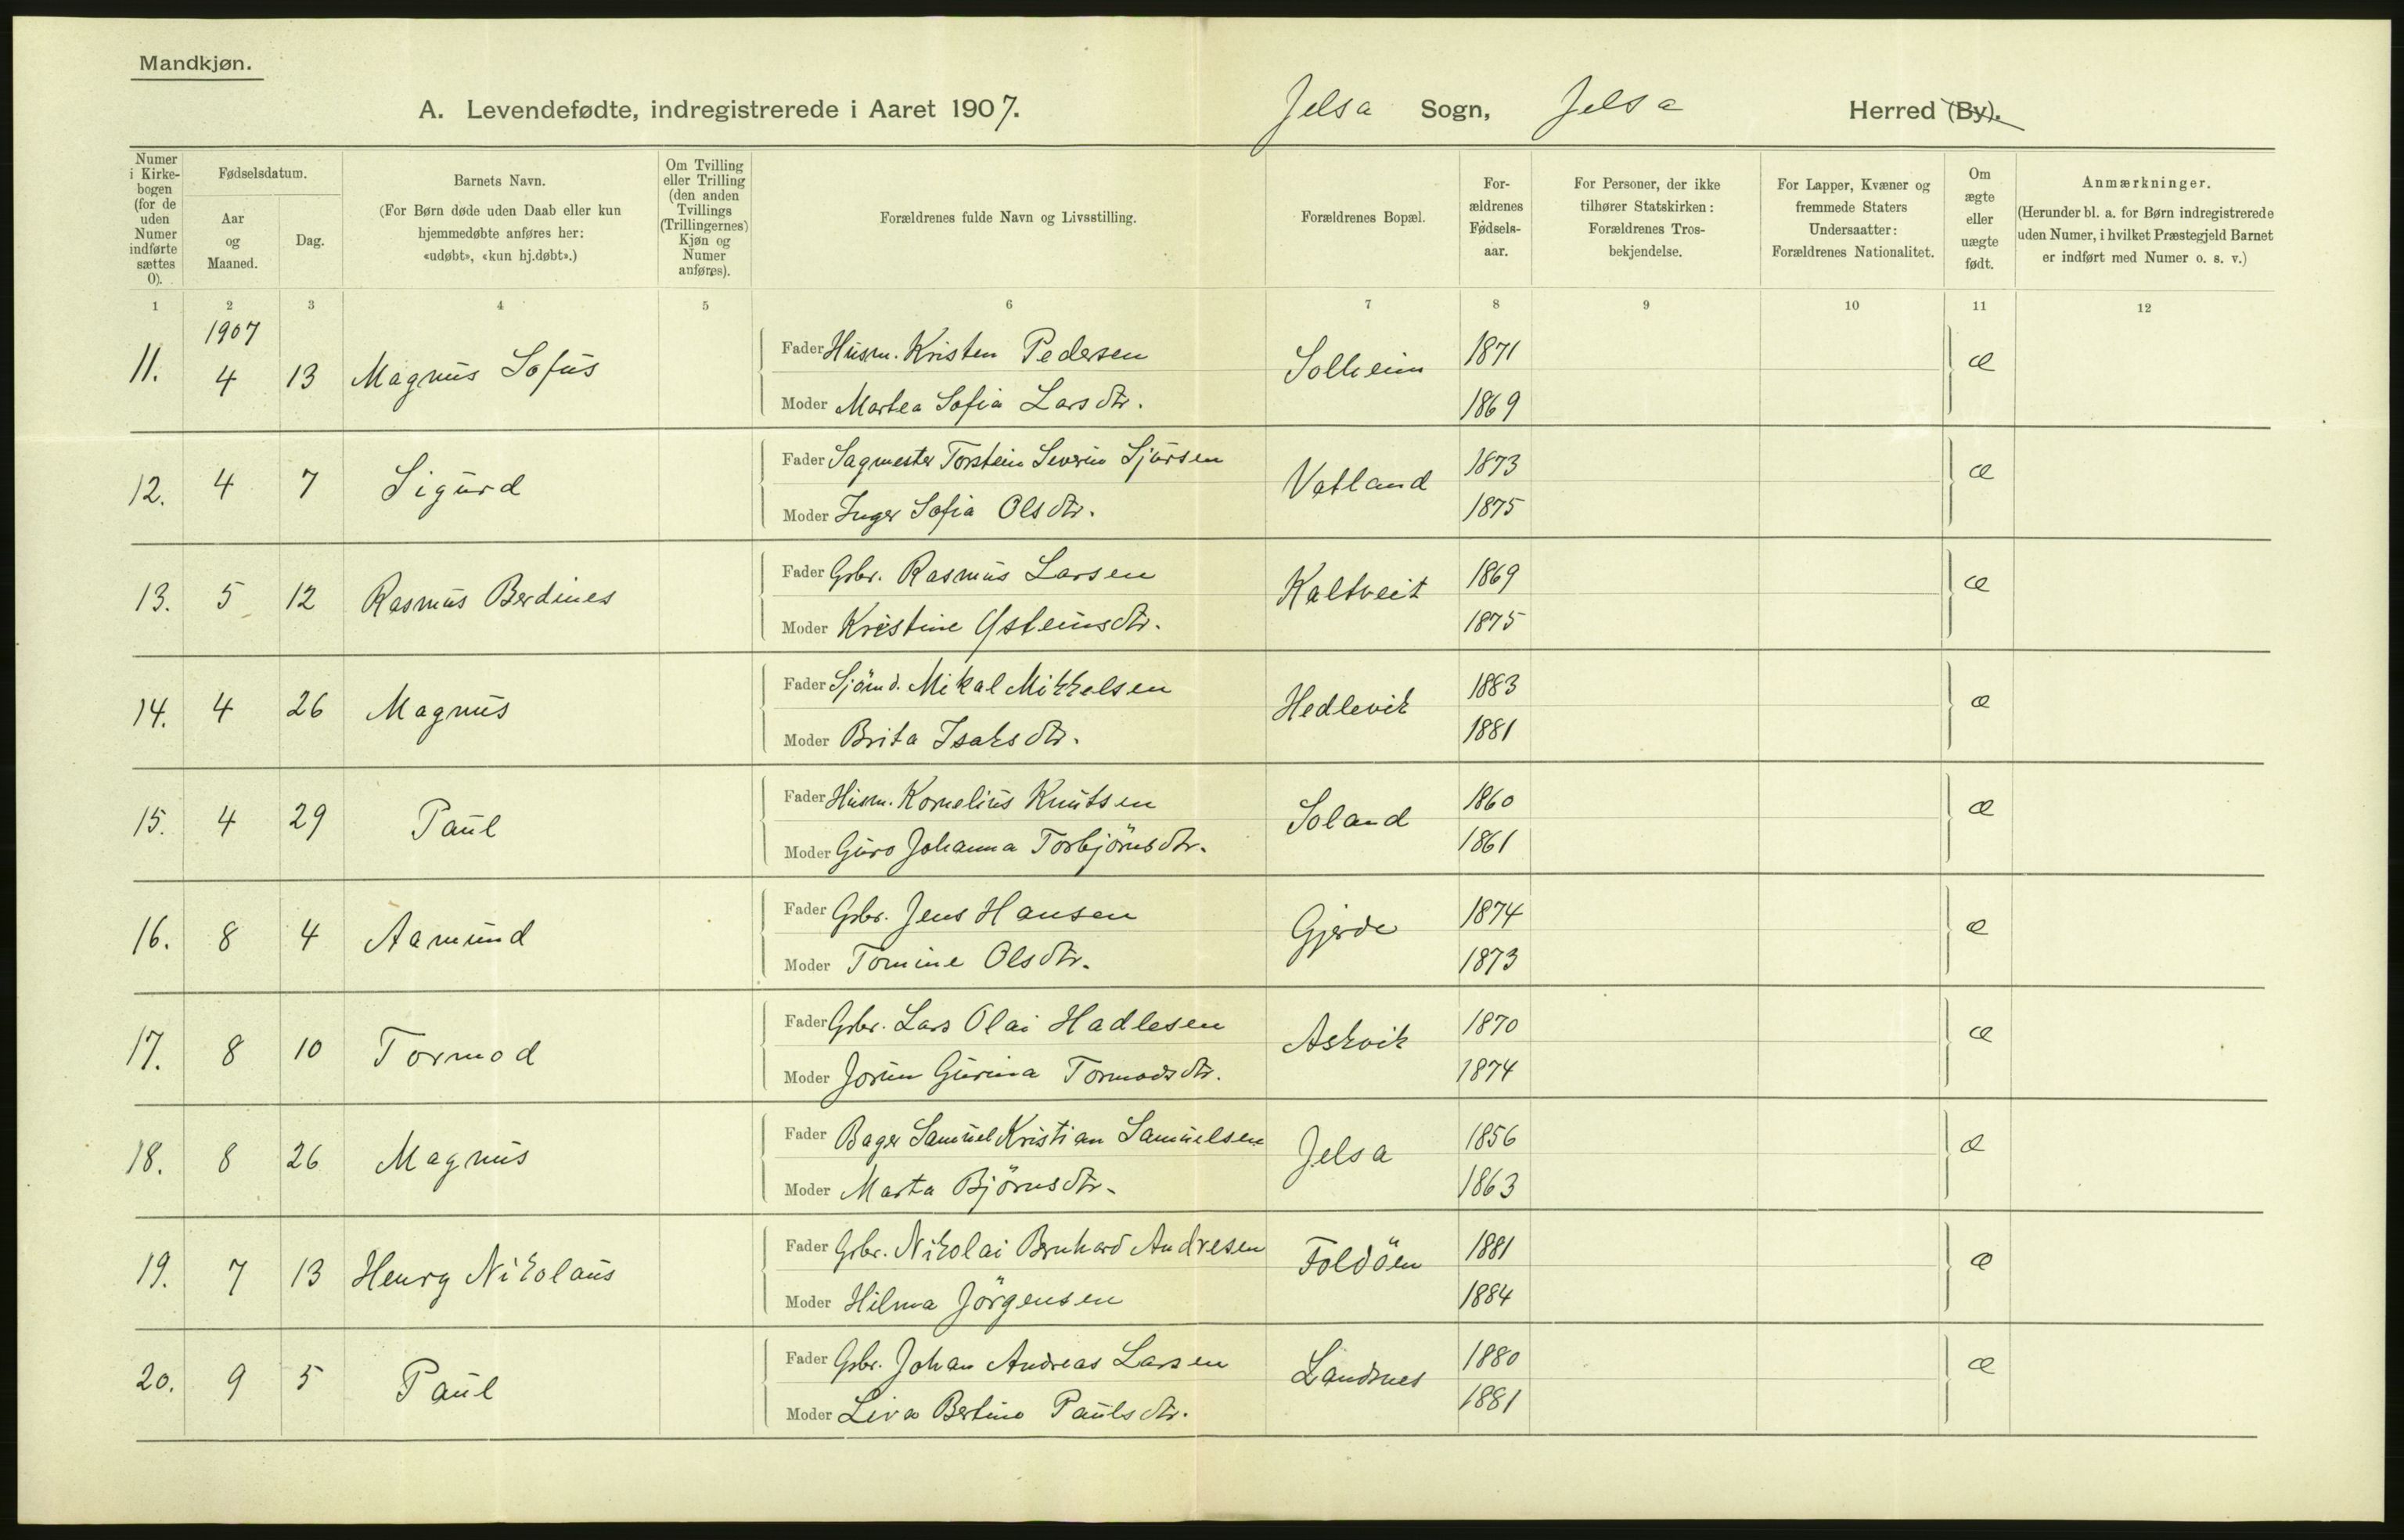 Mandkjøn.
A. Levendefødte, indregistrerede i Aaret 1907. Jelsa Sogn, Jelsa Herred (By).
Numer i Kirke-bogen (for de uden Numer indførte sættes 0).
Fødselsdatum.
Aar og Maaned.
Dag.
Barnets Navn.
(For Børn døde uden Daab eller kun
hjemmedøbte anføres her:
«udøbt», «kun hj.døbt».)
Om Tvilling
eller Trilling
(den anden
Tvillings
(Trillingernes)
Kjøn og
Numer
anføres).
Forældrenes fulde Navn og Livsstilling.
Forældrenes Bopæl.
For-
ældrenes
Fødsels-
aar.
For Personer, der ikke
tilhører Statskirken:
Forældrenes Tros-
bekjendelse.
For Lapper, Kvæner og
fremmede Staters
Undersaatter:
Forældrenes Nationalitet.
Om
ægte
eller
uægte
født.
Anmærkninger.
(Herunder bl. a. for Børn indregistrerede
uden Numer, i hvilket Præstegjeld Barnet
er indført med Numer o. s. v.)
1 2 3 4 5 6 7 8 9 10 11 12
1907
11. 4 13 Magnus Sofus Fader Husm. Kristen Pedersen Solheim 1871 æ
Moder Martea Sofia Larsdtr. 1869
12. 4 7 Sigurd Fader Sagmester Torstein Severin Sjursen Vatland 1873 æ
Moder Inger Sofia Olsdtr. 1875
13. 5 12 Rasmus Berdines Fader Grbr. Rasmus Larsen Kaltveit 1869 æ
Moder Kristine Østeinsdtr. 1875
14. 4 26 Magnus Fader Sjömd. Mikal Mikkelsen Hedlevik 1883 æ
Moder Brita Isaksdtr. 1881
15. 4 29 Paul Fader Husm. Kornelius Knutsen Soland 1860 æ
Moder Guro Johanna Torbjörnsdtr. 1861
16. 8 4 Aamund Fader Grbr. Jens Hansen Gjerde 1874 æ
Moder Tomine Olsdtr. 1873
17. 8 10 Tormod Fader Grbr. Lars Olai Hadlesen Askvik 1870 æ
Moder Jorun Gurina Tormodsdtr. 1874
18. 8 26 Magnus Fader Bager Samuel Kristian Samuelsen Jelsa 1856 æ
Moder Marta Björnsdtr. 1863
19. 7 13 Henry Nikolaus Fader Grbr. Nikolai Bernhard Andresen Foldöen 1881 æ
Moder Hilma Jörgensen 1884
20. 9 5 Paul Fader Grbr. Johan Andreas Larsen Landsnes 1880 æ
Moder Liva Bertine Paulsdtr. 1881